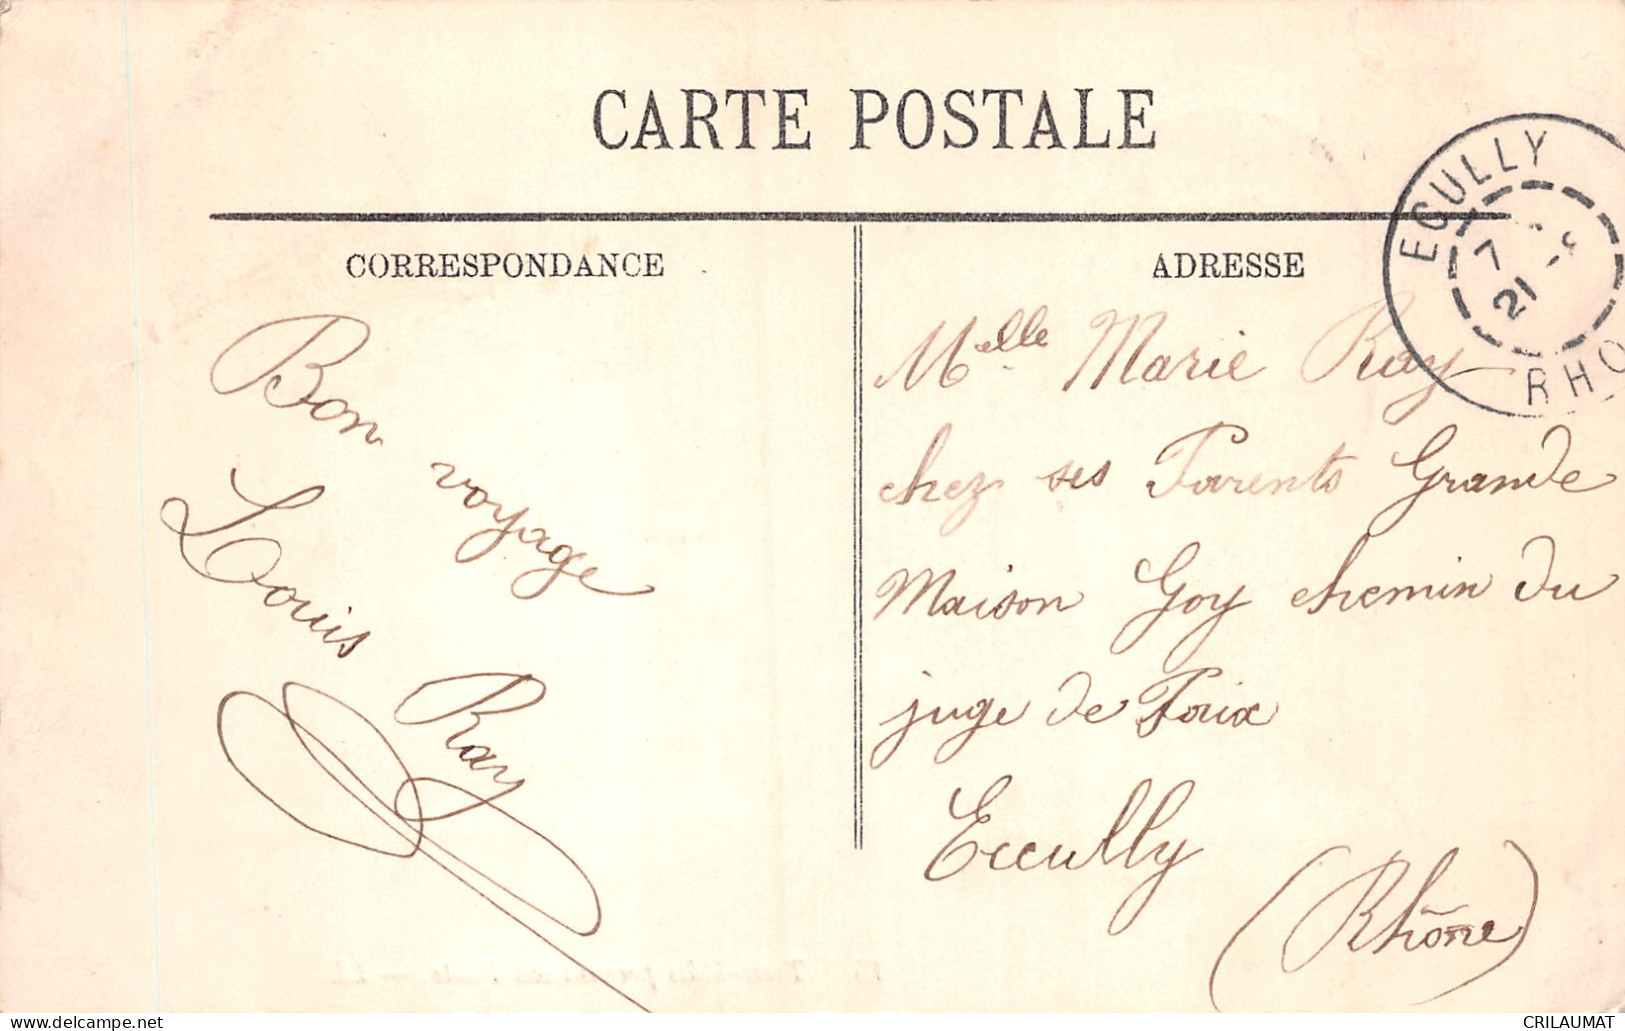 CARTE POSTALE
CORRESPONDANCE
ADRESSE
ECULLY
7
21
RHO
Bon voyage
Louis
Ray
Melle Marie Ray
chez ses Parents Grande
Maison Goy chemin du
juge de Paix
Eccully
(Rhône)
CRILAUMAT